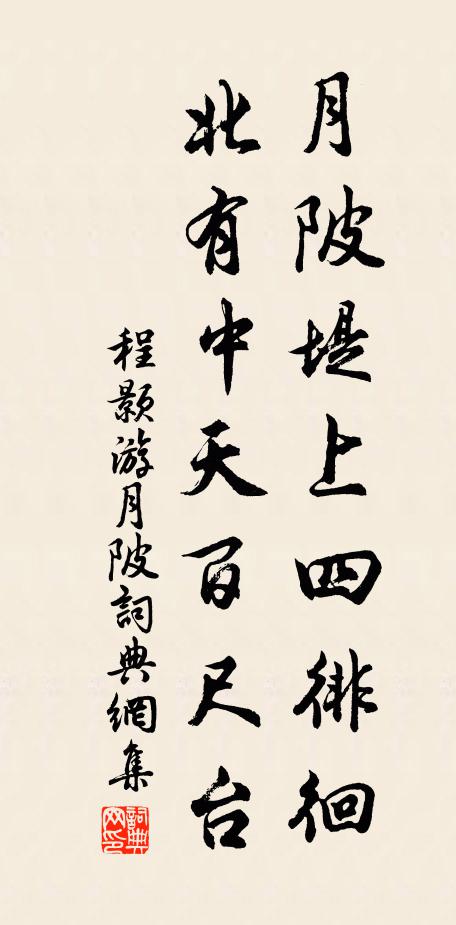 月陂堤上四徘徊
北有中天百尺台
程颢游月陂詞典網集
詞典
网印